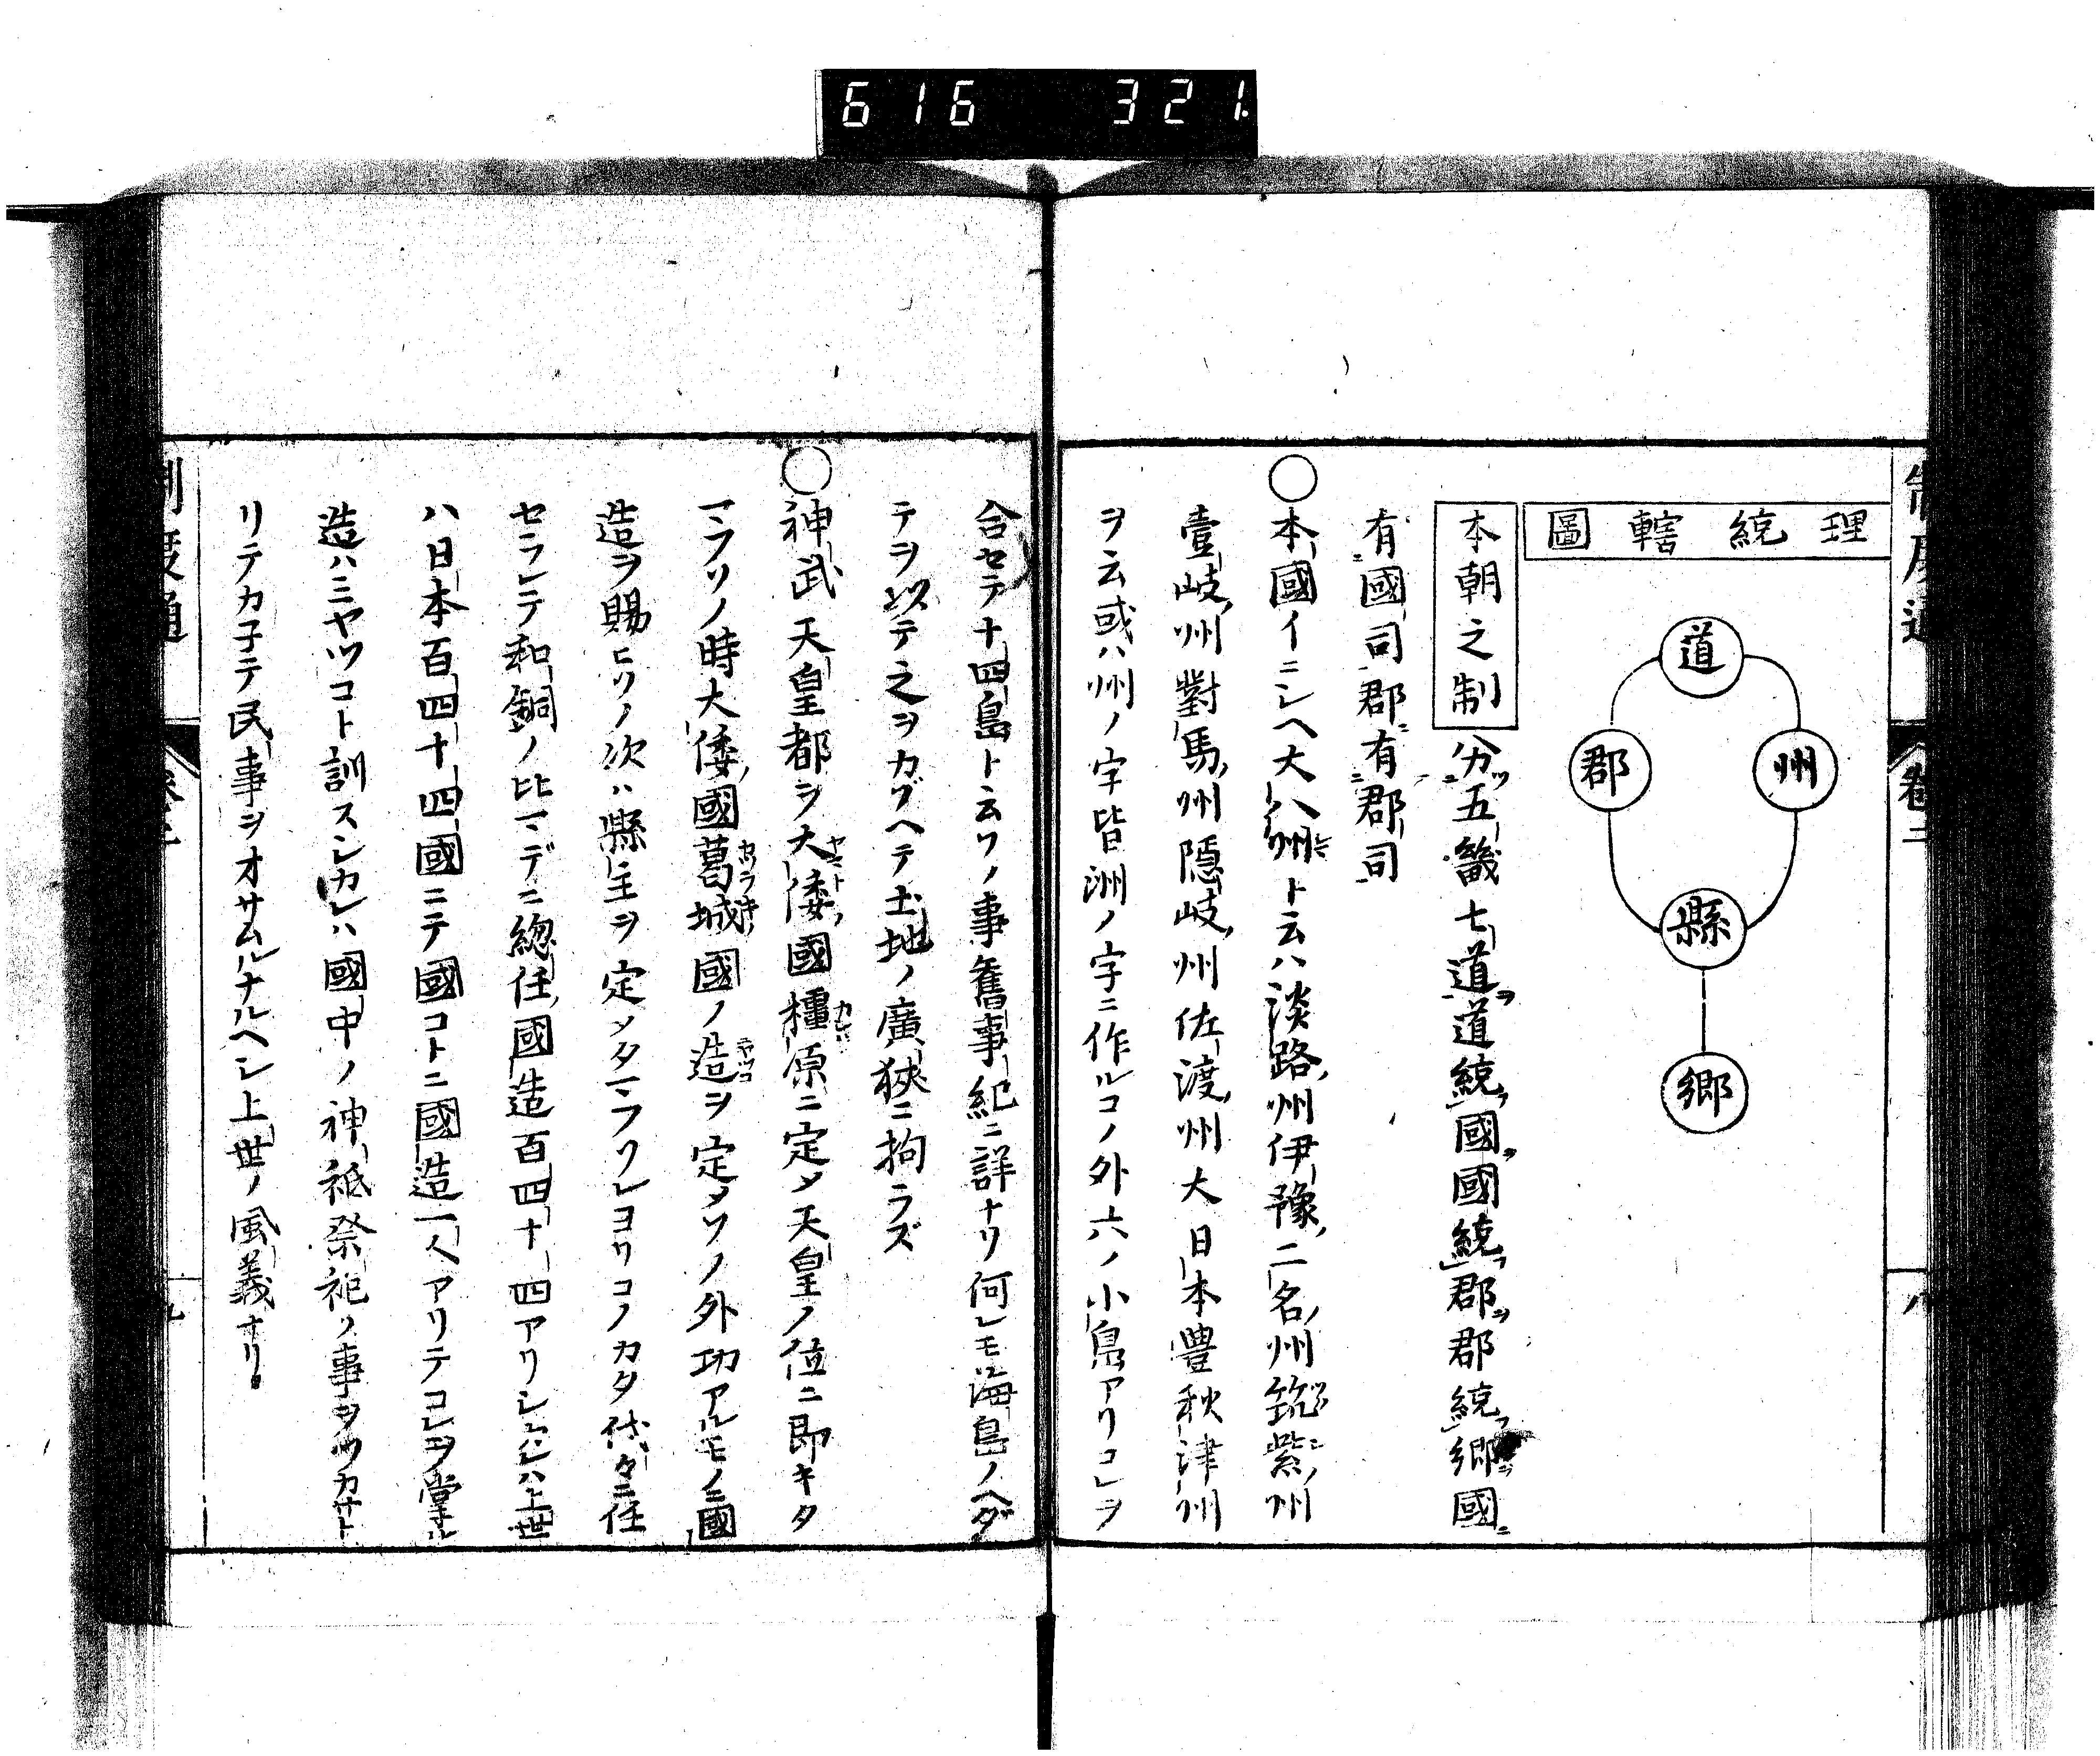 616 321.
制度通
卷二
八
理統轄圖
道
州
郡
縣
鄉
本朝之制 分五畿七道道統國國統郡郡統鄉國
有國司郡有郡司
○本國イニシヘ大八州ト云ハ淡路州伊豫二名州筑紫州
壹岐州對馬州隱岐州佐渡州大日本豐秋津州
ヲ云或ハ州ノ字皆洲ノ字ニ作ルコノ外六ノ小島アリコレヲ
合セテ十四島ト云ソノ事舊事紀ニ詳ナリ何レモ海島ノヘダ
テヲ以テ之ヲカゾヘテ土地ノ廣狹ニ拘ラズ
○神武天皇都ヲ大倭國橿原ニ定メ天皇ノ位ニ即キタ
マフソノ時大倭國葛城國ノ造ヲ定メソノ外功アルモノニ國
造ヲ賜ヒソノ次ハ縣主ヲ定メタマフソレヨリコノカタ代々ニ任
セラレテ和銅ノ比マデニ總任國造百四十四アリシトゾシハ上世
ハ日本百四十四國ニテ國コトニ國造一人アリテコレヲ掌ル
造ハミヤツコト訓スシカレハ國中ノ神祇祭祀ノ事ヲツカサト
リテカ子テ民事ヲオサムルナルヘシ上世ノ風義ナリ。
制度通
卷二
九